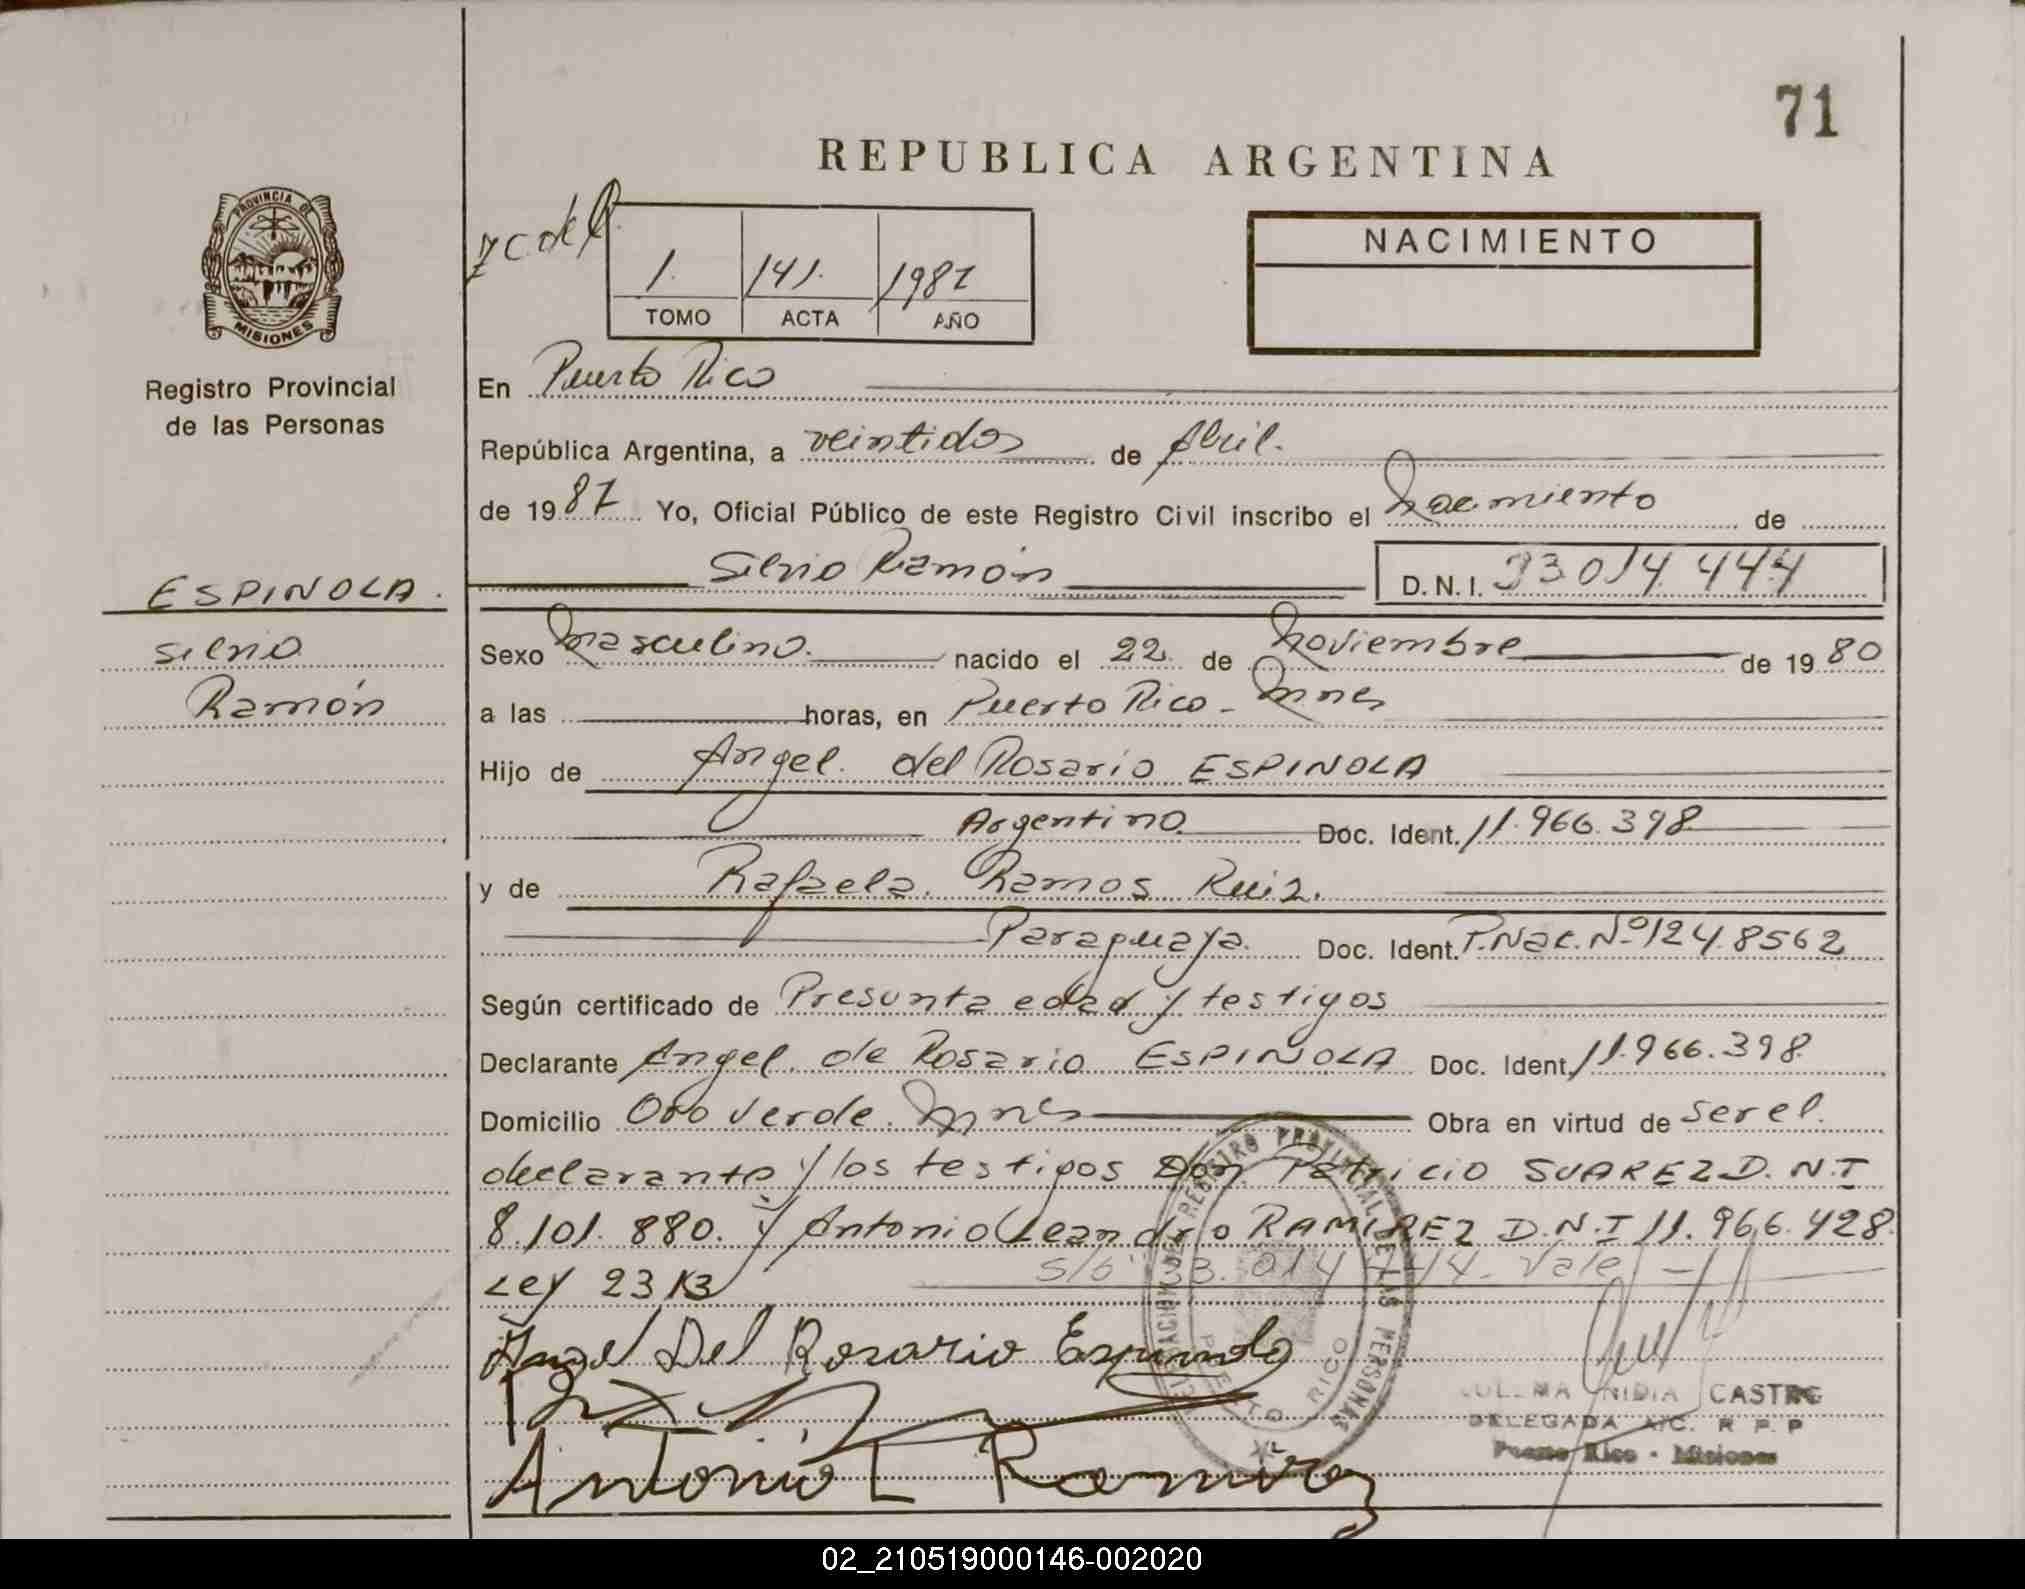 71
REPUBLICA ARGENTINA
PROVINCIA DE
MISIONES
Registro Provincial
de las Personas
1. 141. 1987
TOMO ACTA AÑO
NACIMIENTO
En Puerto Rico
República Argentina, a veintidos de Abril.
de 1987 Yo, Oficial Público de este Registro Civil inscribo el Nacimiento de
Silvio Ramón D.N.I. 33.014.444
ESPINOLA.
Silvio
Ramón
Sexo Masculino. nacido el 22 de Noviembre de 1980
a las horas, en Puerto Rico - Mnes
Hijo de Angel del Rosario ESPINOLA
Argentino Doc. Ident. 11.966.398
y de Rafaela Ramos Ruiz.
Paraguaya. Doc. Ident. P.Nac.Nº 124.8562
Según certificado de Presunta edad y testigos
Declarante Angel de Rosario ESPINOLA Doc. Ident. 11.966.398
Domicilio Oro Verde. Mnes Obra en virtud de ser el
declarante y los testigos Don Patricio SUAREZ D.N.I
8.101.880. y Antonio Leandro RAMIREZ D.N.I 11.966.428
Ley 23 s/b 33.014.444 - Vale -
Angel Del Rosario Espinola
Antonio L Ramirez
REGISTRO PROVINCIAL DE LAS PERSONAS
PUERTO RICO
NIDIA CASTRO
DELEGADA A/C. R. P. P
Puerto Rico - Misiones
02_210519000146-002020